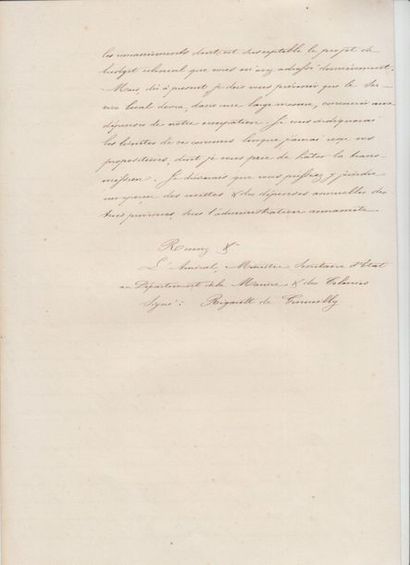 les remaniements dont est susceptible le projet de
budget colonial que vous m'avez adressé dernièrement.
Mais, dès à présent, je dois vous prévenir que le Ser-
vice local devra, dans une large mesure, concourir aux
dépenses de notre occupation. Je vous indiquerai
les limites de ce concours lorsque j'aurai reçu vos
propositions, dont je vous prie de hâter la trans-
mission. Je désirerais que vous puissiez y joindre
un aperçu des recettes & des dépenses annuelles des
trois provinces, sous l'administration annamite.
Recevez &a
L'Amiral, Ministre Secrétaire d'Etat
au Département de la Marine & des Colonies
Signé: Rigault de Genouilly